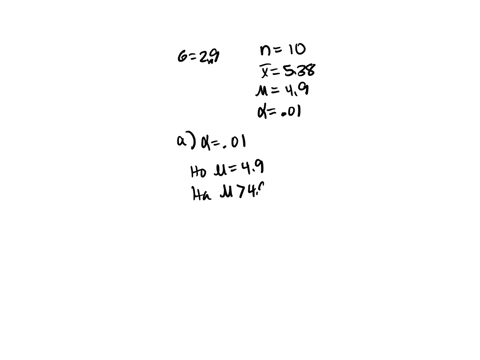 σ=2.9
n=10
x̄=5.38
μ=4.9
α=.01
a) α=.01
Ho μ=4.9
Ha μ>4.9